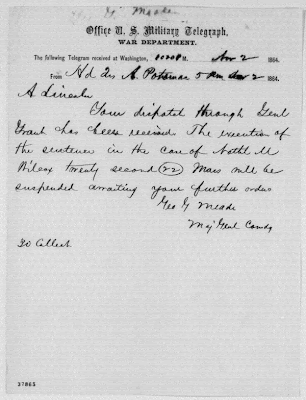 G Meade
Office U. S. Military Telegraph,
WAR DEPARTMENT.
The following Telegram received at Washington, M. Nov 2 1864.
From Hd Qrs A. Potomac 5 Pm Nov 2 1864.
A Lincoln
Your dispatch through Genl
Grant has been received The execution of
the sentence in the case of Nathl M
Wilcox twenty second (22) Mass will be
suspended awaiting your further orders
Geo G Meade
Maj Genl Comdg
20 Collect
37865